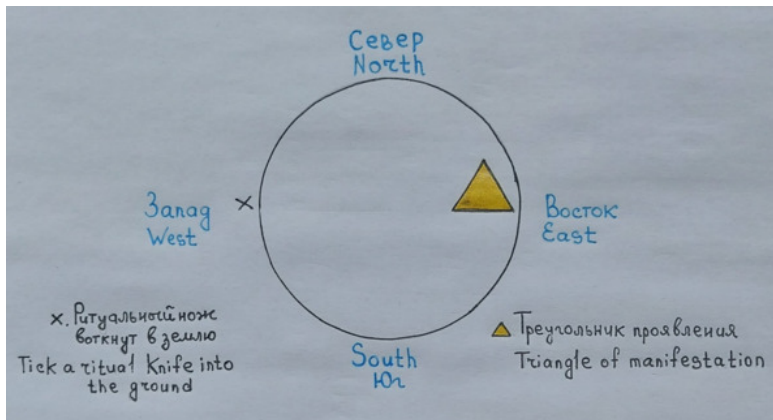 Север
North
Запад
West
Восток
East
South
Юг
х. Ритуальный нож
воткнут в землю
Tick a ritual Knife into
the ground
Треугольник проявления
Triangle of manifestation